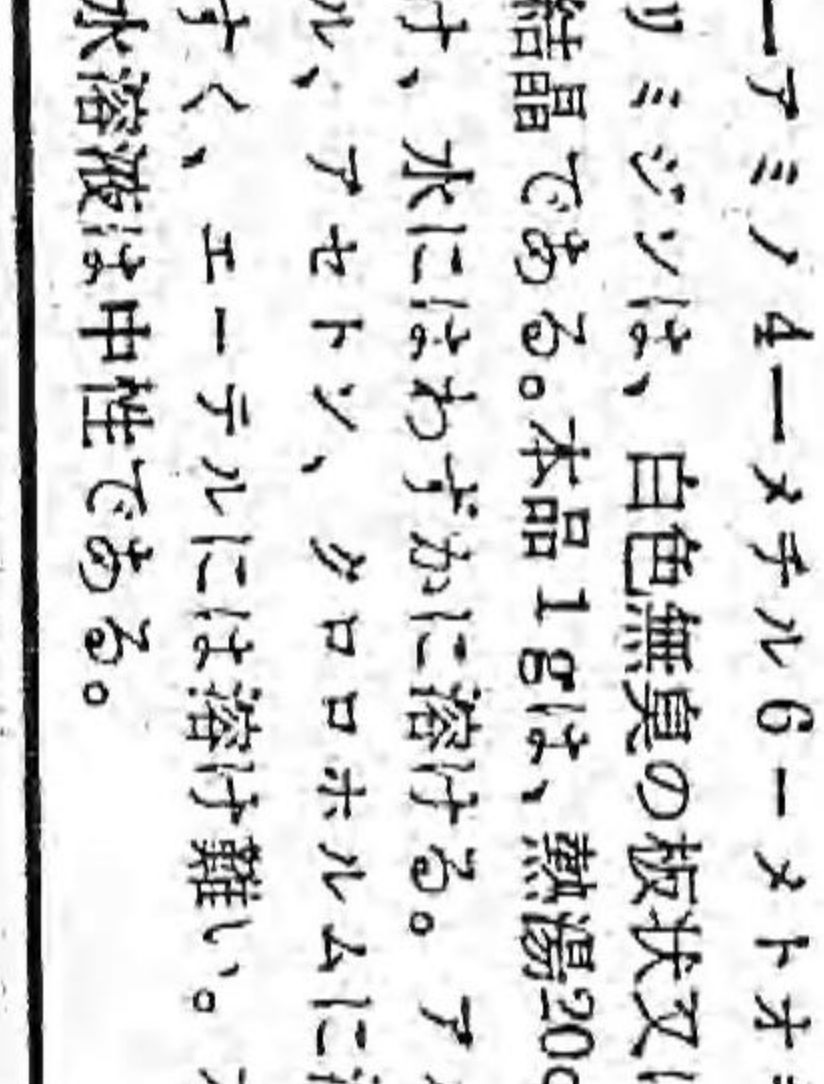 ーアミノ4ーメチル6ーメトオ
リミジンは、白色無臭の板状又
結晶である。本品1gは、熱湯20
け、水にはわずかに溶ける。ア
ル、アセトン、クロロホルムに
すく、エーテルには溶け難い。
水溶液は中性である。